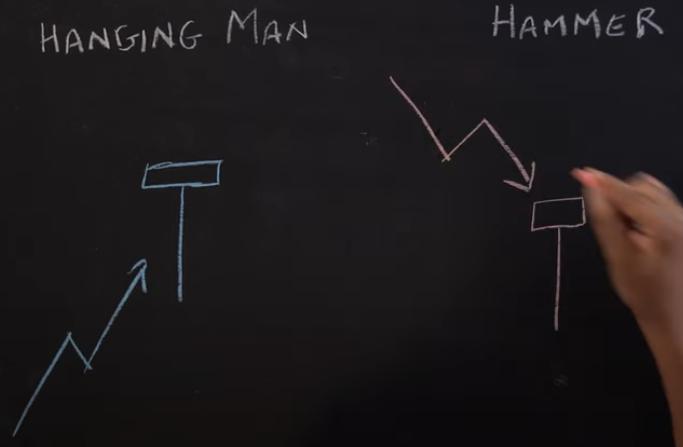 HANGING MAN
HAMMER